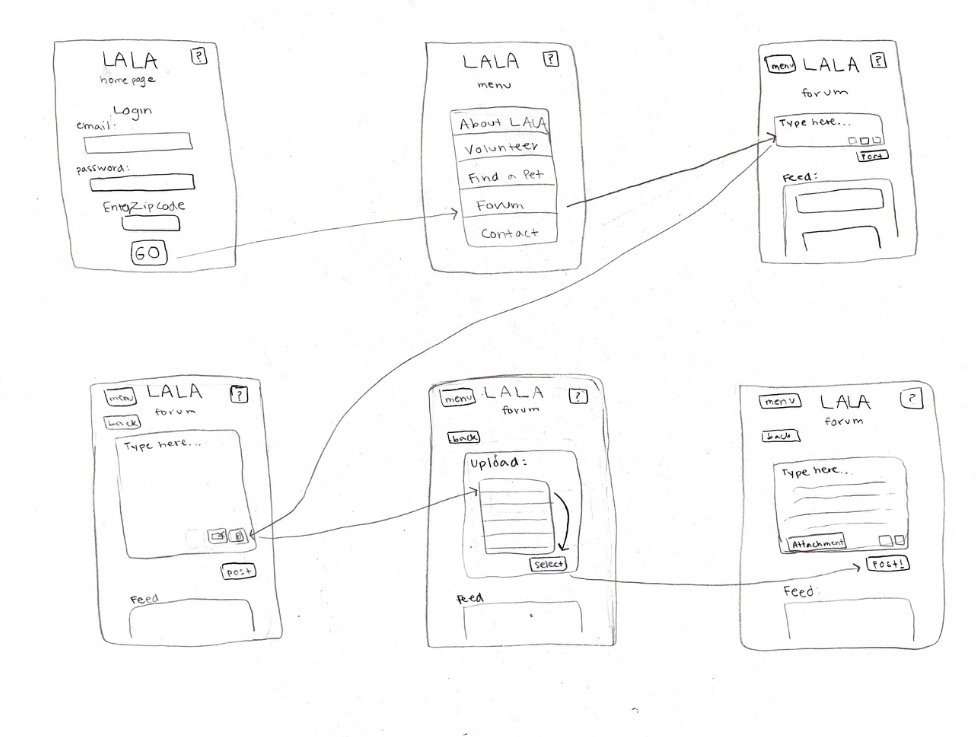 LALA ?
home page
Login
email:
password:
Enter Zip code
GO
LALA ?
menu
About LALA
Volunteer
Find a Pet
Forum
Contact
menu LALA ?
forum
Type here...
Post
Feed:
menu LALA ?
forum
back
Type here...
post
Feed
menu LALA ?
forum
back
Upload:
select
Feed
menu LALA ?
forum
back
Type here...
Attachment
POST!
Feed: